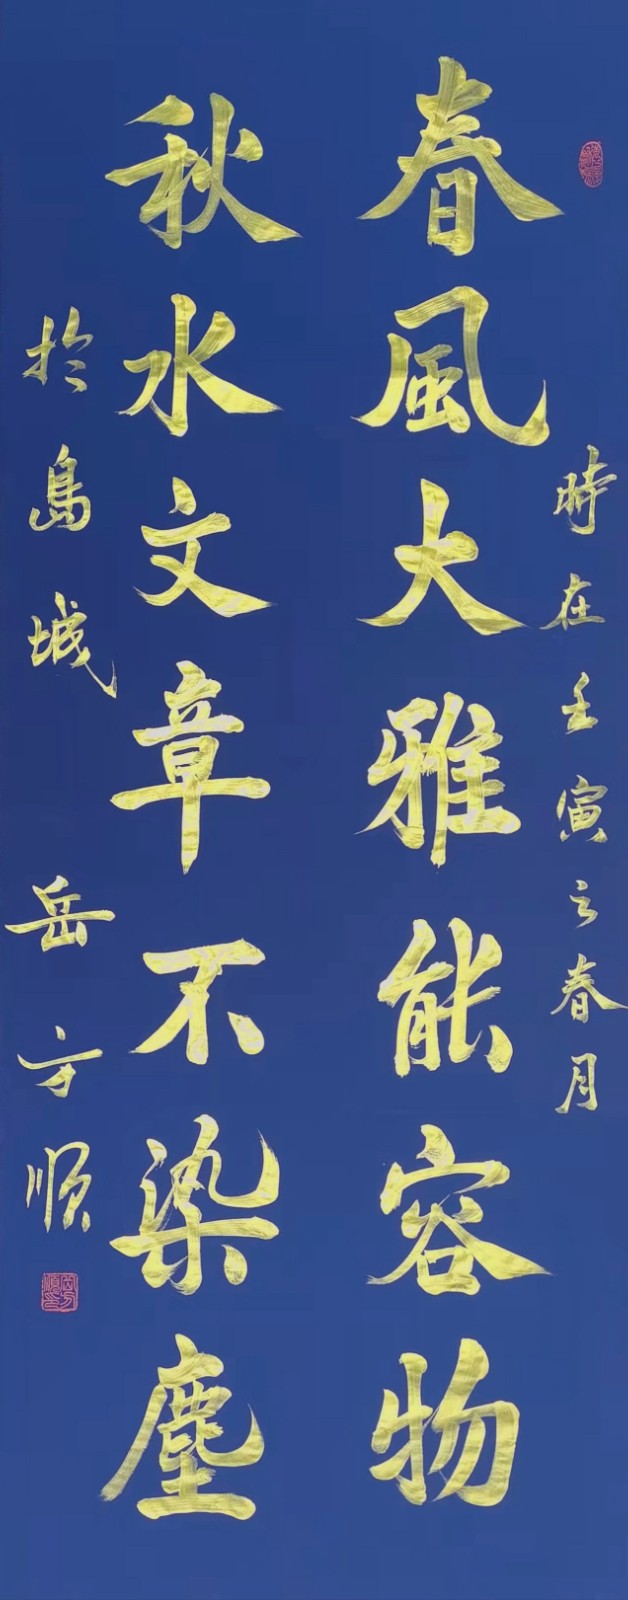 時在壬寅之春月
春風大雅能容物
秋水文章不染塵
於島城 岳方順